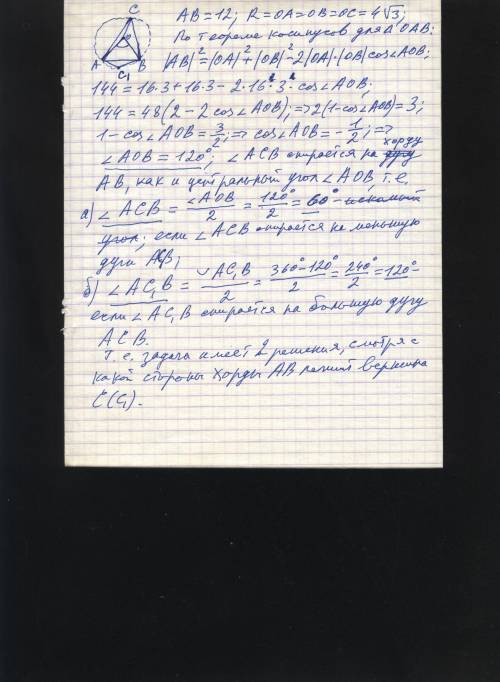 C
A B
C₁
AB = 12; R = OA = OB = OC = 4√3;
По теореме косинусов для Δ OAB:
|AB|² = |OA|² + |OB|² - 2|OA|·|OB| cos∠AOB;
144 = 16·3 + 16·3 - 2·16·3·cos∠AOB;
144 = 48(2 - 2cos∠AOB); => 2(1 - cos∠AOB) = 3;
1 - cos∠AOB = 3/2; => cos∠AOB = -1/2; =>
∠AOB = 120°; ∠ACB опирается на хорду
AB, как и центральный угол ∠AOB, т.е.
а) ∠ACB = ∠AOB/2 = 120°/2 = 60° - искомый
угол; если ∠ACB опирается на меньшую
дугу AB;
б) ∠AC₁B = ◡AC₁B/2 = 360°-120°/2 = 240°/2 = 120° -
если ∠AC₁B опирается на большую дугу
ACB.
Т.е. задача имеет 2 решения, смотря с
какой стороны хорды AB лежит вершина
C(C₁).